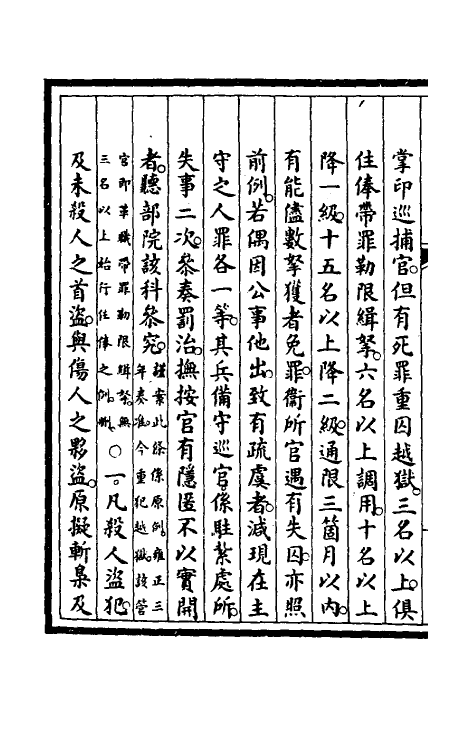 掌印巡捕官。但有死罪重囚越獄。三名以上。俱
住俸帶罪勒限緝拏。六名以上調用。十名以上
降一級。十五名以上降二級。通限三箇月以內。
有能儘數拏獲者免罪。衞所官遇有失囚。亦照
前例。若偶因公事他出。致有疏虞者。減現在主
守之人罪各一等。其兵備守巡官。係駐紮處所。
失事二次。叅奏罰治。撫按官有隱匿不以實開
者。聽部院該科叅究。謹案此條係原例。雍正三
年奏准。今重犯越獄。該管
官即革職帶罪勒限緝拏。無
三名以上始行住俸之例。刪。○一。凡殺人盜犯。
及未殺人之首盜。與傷人之夥盜。原擬斬梟及